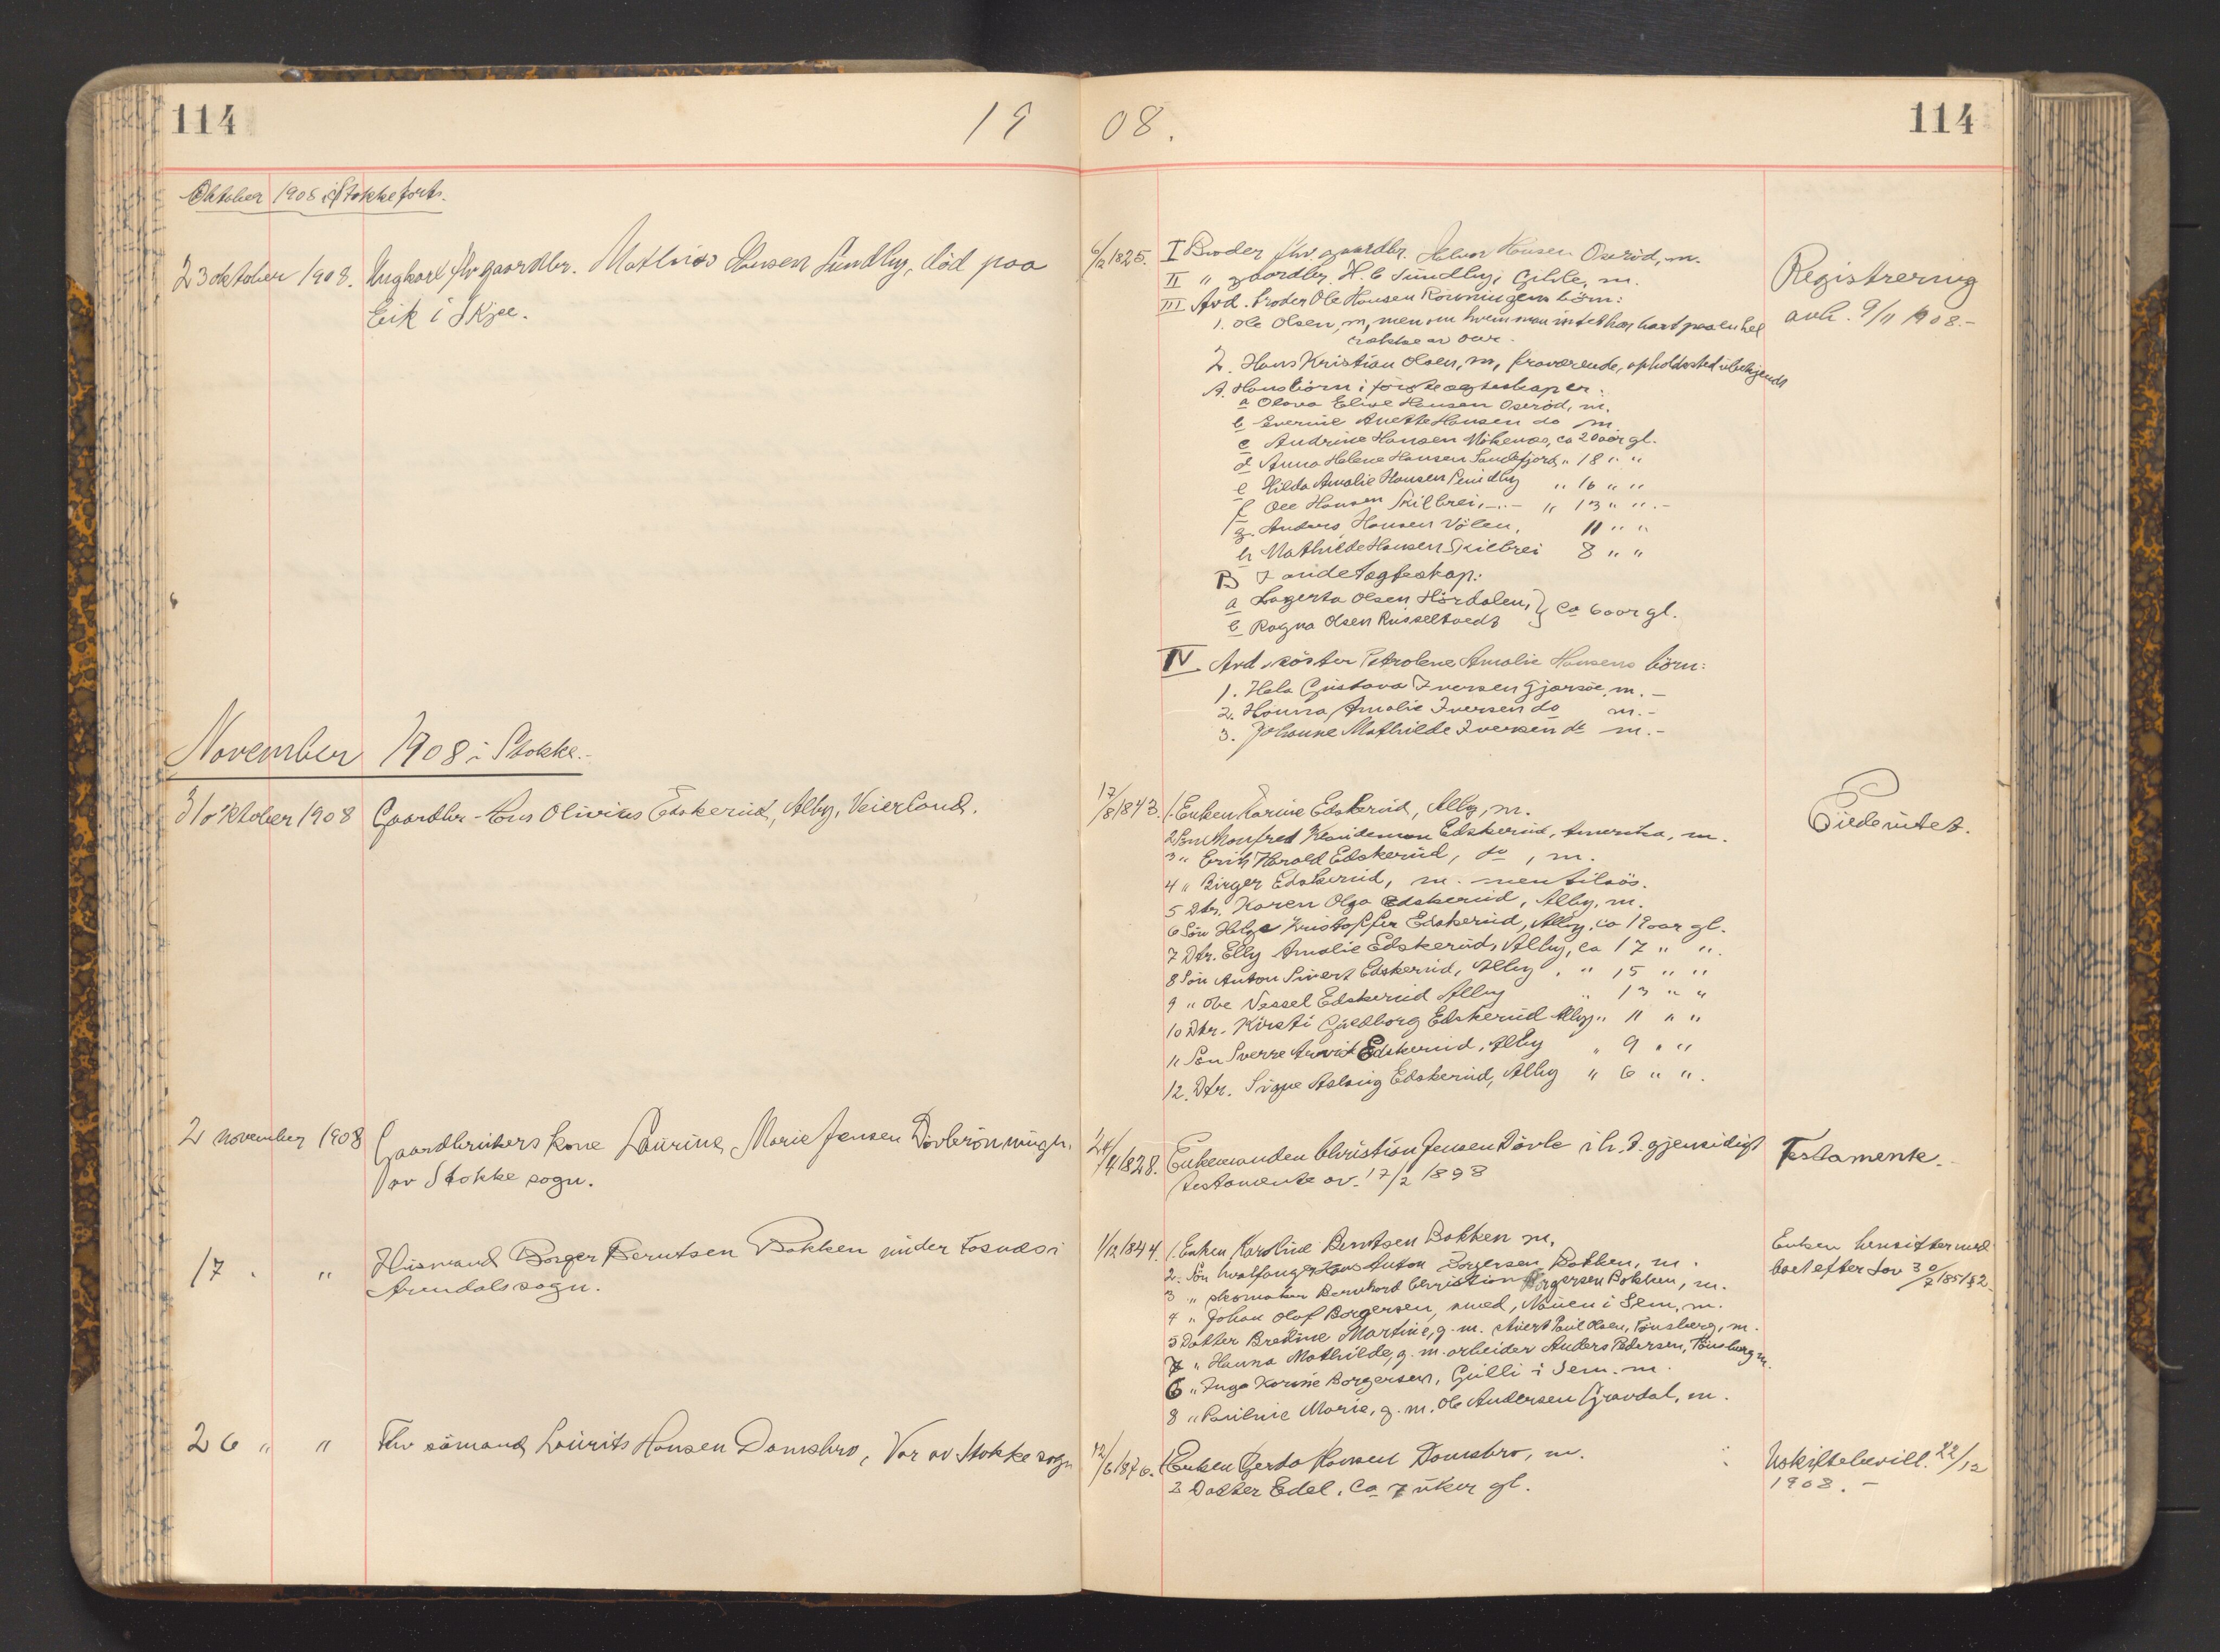 114
19
08.
114
Oktober 1908 i Stokke forts.
23 oktober 1908. Ungkarl fhv gaardbr. Mathias Hansen Sundby, död paa
Eik i Skjee.
6/2 1825. I Broder fhv. gaardbr. Helvor Hansen Oseröd, m.
II " gaardbr. H. C Sundby, Gible, m.
III Avd. broder Ole Hansen Rönningens börn:
1. Ole Olsen, m, men om hvem man intet har hört paa en hel
række av aar.
2. Hans Kristian Olsen, m, fraværende, opholdssted ubekjendt
A. Hans börn i förste ægteskap er:
a Olava Elise Hansen Oseröd, m.
b Severine Anette Hansen do m.
c Andrine Hansen, ca 20 aar gl.
d Anna Helene Hansen Sandefjord, " 18 " "
e Hilda Amalie Hansen Sundby " 16 " "
f Ole Hansen Skilbrei, -"- " 13 " ".-
g. Anders Hansen Völen, 11 " "
h Mathilde Hansen Skilbrei 8 " "
B I andet ægteskap:
a Lagerta Olsen Hördalen,
b Ragna Olsen Russeltvedt } ca 6 aar gl.
IV Avd. söster Petrolene Amalie Hansens börn:
1. Hela Gustava Iversen Gjærsöe, m.-
2. Hanna Amalie Iversen do m.-
3. Johanne Mathilde Iversen do m.-
Registrering
avh. 9/11 1908.-
November 1908 i Stokke.-
31 oktober 1908 Gaardbr. Hans Olivius Edskerud, Alby, Veierland.
17/8 1843. 1. Enken Karine Edskerud, Alby, m.
2 Sön Manfred Klaudemon Edskerud, Amerika, m.
3 " Erik Harald Edskerud, do, m.
4 " Birger Edskerud, m. men tilsös.
5 Dtr. Karen Olga Edskerud, Alby, m.
6 Sön Helge Kristoffer Edskerud, Alby, ca 19 aar gl.
7 Dtr. Elly Amalie Edskerud, Alby, ca 17 " ".
8 Sön Anton Sivert Edskerud, Alby, " 15 " "
9 " Ove Vessel Edskerud Alby " 13 " "
10 Dtr. Kirsti Guldborg Edskerud Alby " 11 " "
11 Sön Sverre Arvid Edskerud, Alby " 9 " "
12. Dtr. Signe Aslaug Edskerud, Alby " 6 " ".
Gildevitet.
2 november 1908 Gaardbrukers kone Laurine Marie Jensen Dovlerönningen
av Stokke sogn.
24/4 1828. Enkemanden Christian Jensen Dövle i h. t. gjensidigt
testamente av. 17/2 1898
Testamente.
17 " " Husmand Borger Berntsen Bakken under Fosnæs i
Arendals sogn.
1/12 1844. 1. Enken Karoline Berntsen Bakken m,
2. Sön hvalfanger Hans Anton Borgersen Bakken, m.
3 " skomaker Bernhard Christian Borgersen Bakken, m.
4 " Johan Olaf Borgersen, smed, Nauen i Sem, m.
5 Datter Bredine Martine, g. m. stuert Paul Olsen, Tönsberg, m.
7 " Hanna Mathilde, g. m. arbeider Anders Pedersen, Tönsberg m.
6 " Inga Karine Borgersen, Gulli i Sem. m.
8 " Pauline Marie, g. m. Ole Andersen Gravdal, m.
Enken hensitter med
boet efter Lov 30/7 1851 § 2.
26 " " Fhv sömand Laurits Hansen Damsbro, Vær av Stokke sogn
12/6 1876. 1 Enken Gerda Hansen Damsbro, m.
2 Datter Edel, ca 7 uker gl.
Uskiftebevill. 22/12
1908.-